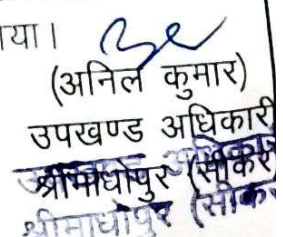 या।
(अनिल कुमार)
उपखण्ड अधिकारी
श्रीमाधोपुर (सीकर
श्रीमाधोपुर (सीक